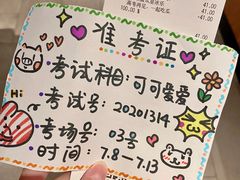 41.00
100.00
41.00
41.00
准考证
考试科目:可可爱爱
Hi
考试号:20201314
考场号:03号
时间:7.8-7.13